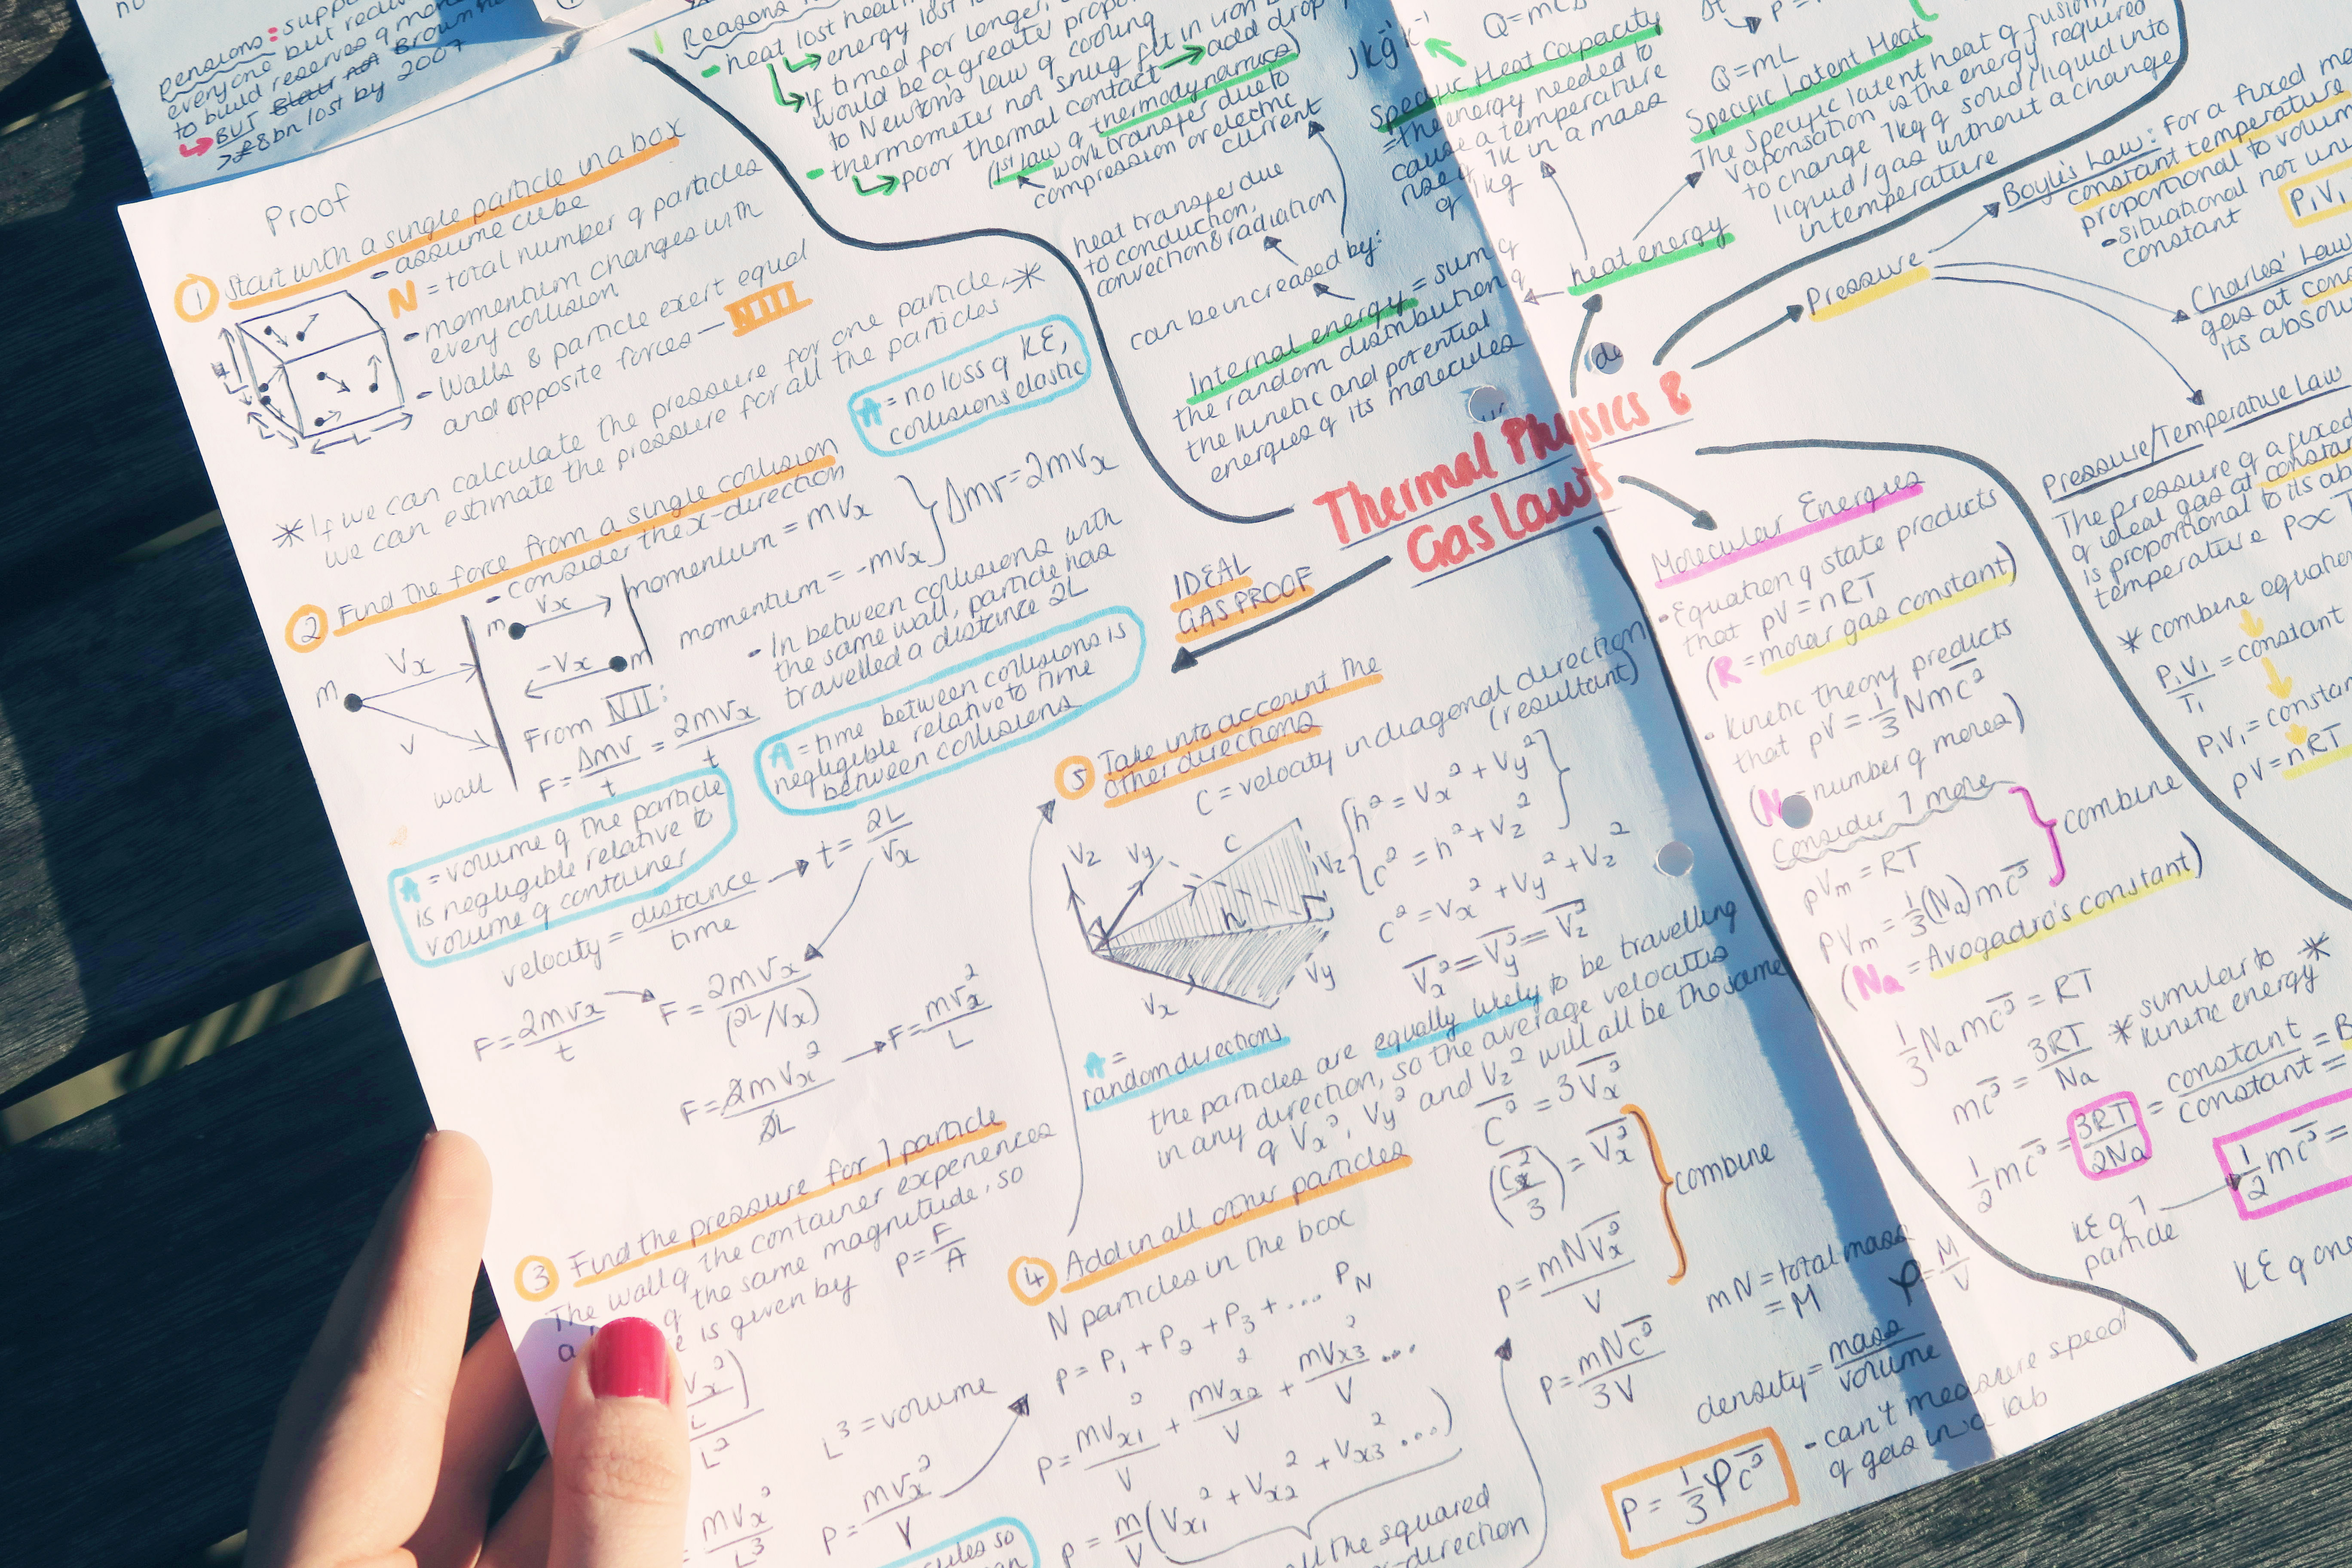 no
pensions: supp
everyone but redu
to build reserves q mon
BUT Blair Brown he
>£8bn lost by 2007
Reasons
- heat lost
energy lost
if timed for longer,
would be a greater propo
to Newton's law q cooling
- thermometer not snug fit in iron b
poor thermal contact → add drop
(1st law q thermodynamics)
work transfer due to
compression or electric
current
heat transfer due
to conduction,
convection & radiation
can be increased by:
Internal energy = sum q
the random distribution q
the kinetic and potential
energies q its molecules
Jkg⁻¹K⁻¹
Q=mL
Specific Heat Capacity
= the energy needed to
cause a temperature
rise q 1K in a mass
q 1kg
Q=mL
Specific Latent Heat
The specific latent heat q fusion/
vaporisation is the energy required
to change 1kg q solid/liquid into
liquid/gas without a change
in temperature
heat energy
Pressure
Boyle's Law: For a fixed ma
constant temperature
proportional to volum
- situational not uni
constant
P₁V₁
Charles' Law
gas at cons
its absolu
Pressure/Temperature Law
The pressure q a fixed
q ideal gas at constan
is proportional to its ab
temperature p∝T
* combine equation
P₁V₁/T₁ = constant
P₁V₁ = constan
pV = nRT
Thermal Physics &
Gas Laws
IDEAL
GAS PROOF
Proof
① Start with a single particle in a box
- assume cube
N = total number q particles
- momentum changes with
every collision
- Walls & particle exert equal
and opposite forces — NIII
L
L
L
* If we can calculate the pressure for one particle, *
we can estimate the pressure for all the particles
A = no loss q KE,
collisions elastic
② Find the force from a single collision
- consider the x-direction
m Vx
momentum = mVx
-Vx m
momentum = -mVx
Δmv = 2mvx
m Vx
v
wall
From NII:
F = Δmv/t = 2mvx/t
- In between collisions with
the same wall, particle has
travelled a distance 2L
A = time between collisions is
negligible relative to time
between collisions
A = volume q the particle
is negligible relative to
volume q container
velocity = distance/time → t = 2L/vx
F = 2mvx/t → F = 2mvx/(2L/Vx)
F = 2mvx²/2L → F = mvx²/L
③ Find the pressure for 1 particle
The wall q the container experiences
a q the same magnitude, so
is given by p = F/A
L²
L³ = volume
mvx²/L³
p = mvx²/V
④ Add in all other particles
N particles in the box
p = P₁ + P₂ + P₃ + ... PN
p = mVx1²/V + mVx2²/V + mVx3²/V ...
p = m/V (Vx1² + Vx2² + Vx3² ...)
the squared
x-direction
⑤ Take into account the
other directions
C = velocity in diagonal direction
(resultant)
Vz
Vy
C
Vz
h
Vy
Vx
h² = Vx² + Vy²
c² = h² + Vz²
c² = Vx² + Vy² + Vz²
V̅x̅²̅ = V̅y̅²̅ = V̅z̅²̅
A =
random directions
the particles are equally likely to be travelling
in any direction, so the average velocities
q Vx², Vy² and Vz² will all be the same
c̅²̅ = 3V̅x̅²̅
(c̅²̅/3) = V̅x̅²̅
p = mNV̅x̅²̅/V
combine
p = mNc̅²̅/3V
mN = total mass
= M
φ = M/V
density = mass/volume
p = 1/3 φc̅²̅
- can't measure speed
q gas in a lab
Molecular Energies
- Equation q state products
that pV = nRT
(R = molar gas constant)
- Kinetic theory products
that pV = 1/3 Nmc̅²̅
(N = number q moles)
Consider 1 mole
pVm = RT
pVm = 1/3 (Na) mc̅²̅
combine
(Na = Avogadro's constant)
1/3 Na mc̅²̅ = RT
mc̅²̅ = 3RT/Na
* similar to *
kinetic energy
1/2 mc̅²̅ = 3RT/2Na = constant/constant =
KE q 1
particle
1/2 mc̅²̅ =
KE q one